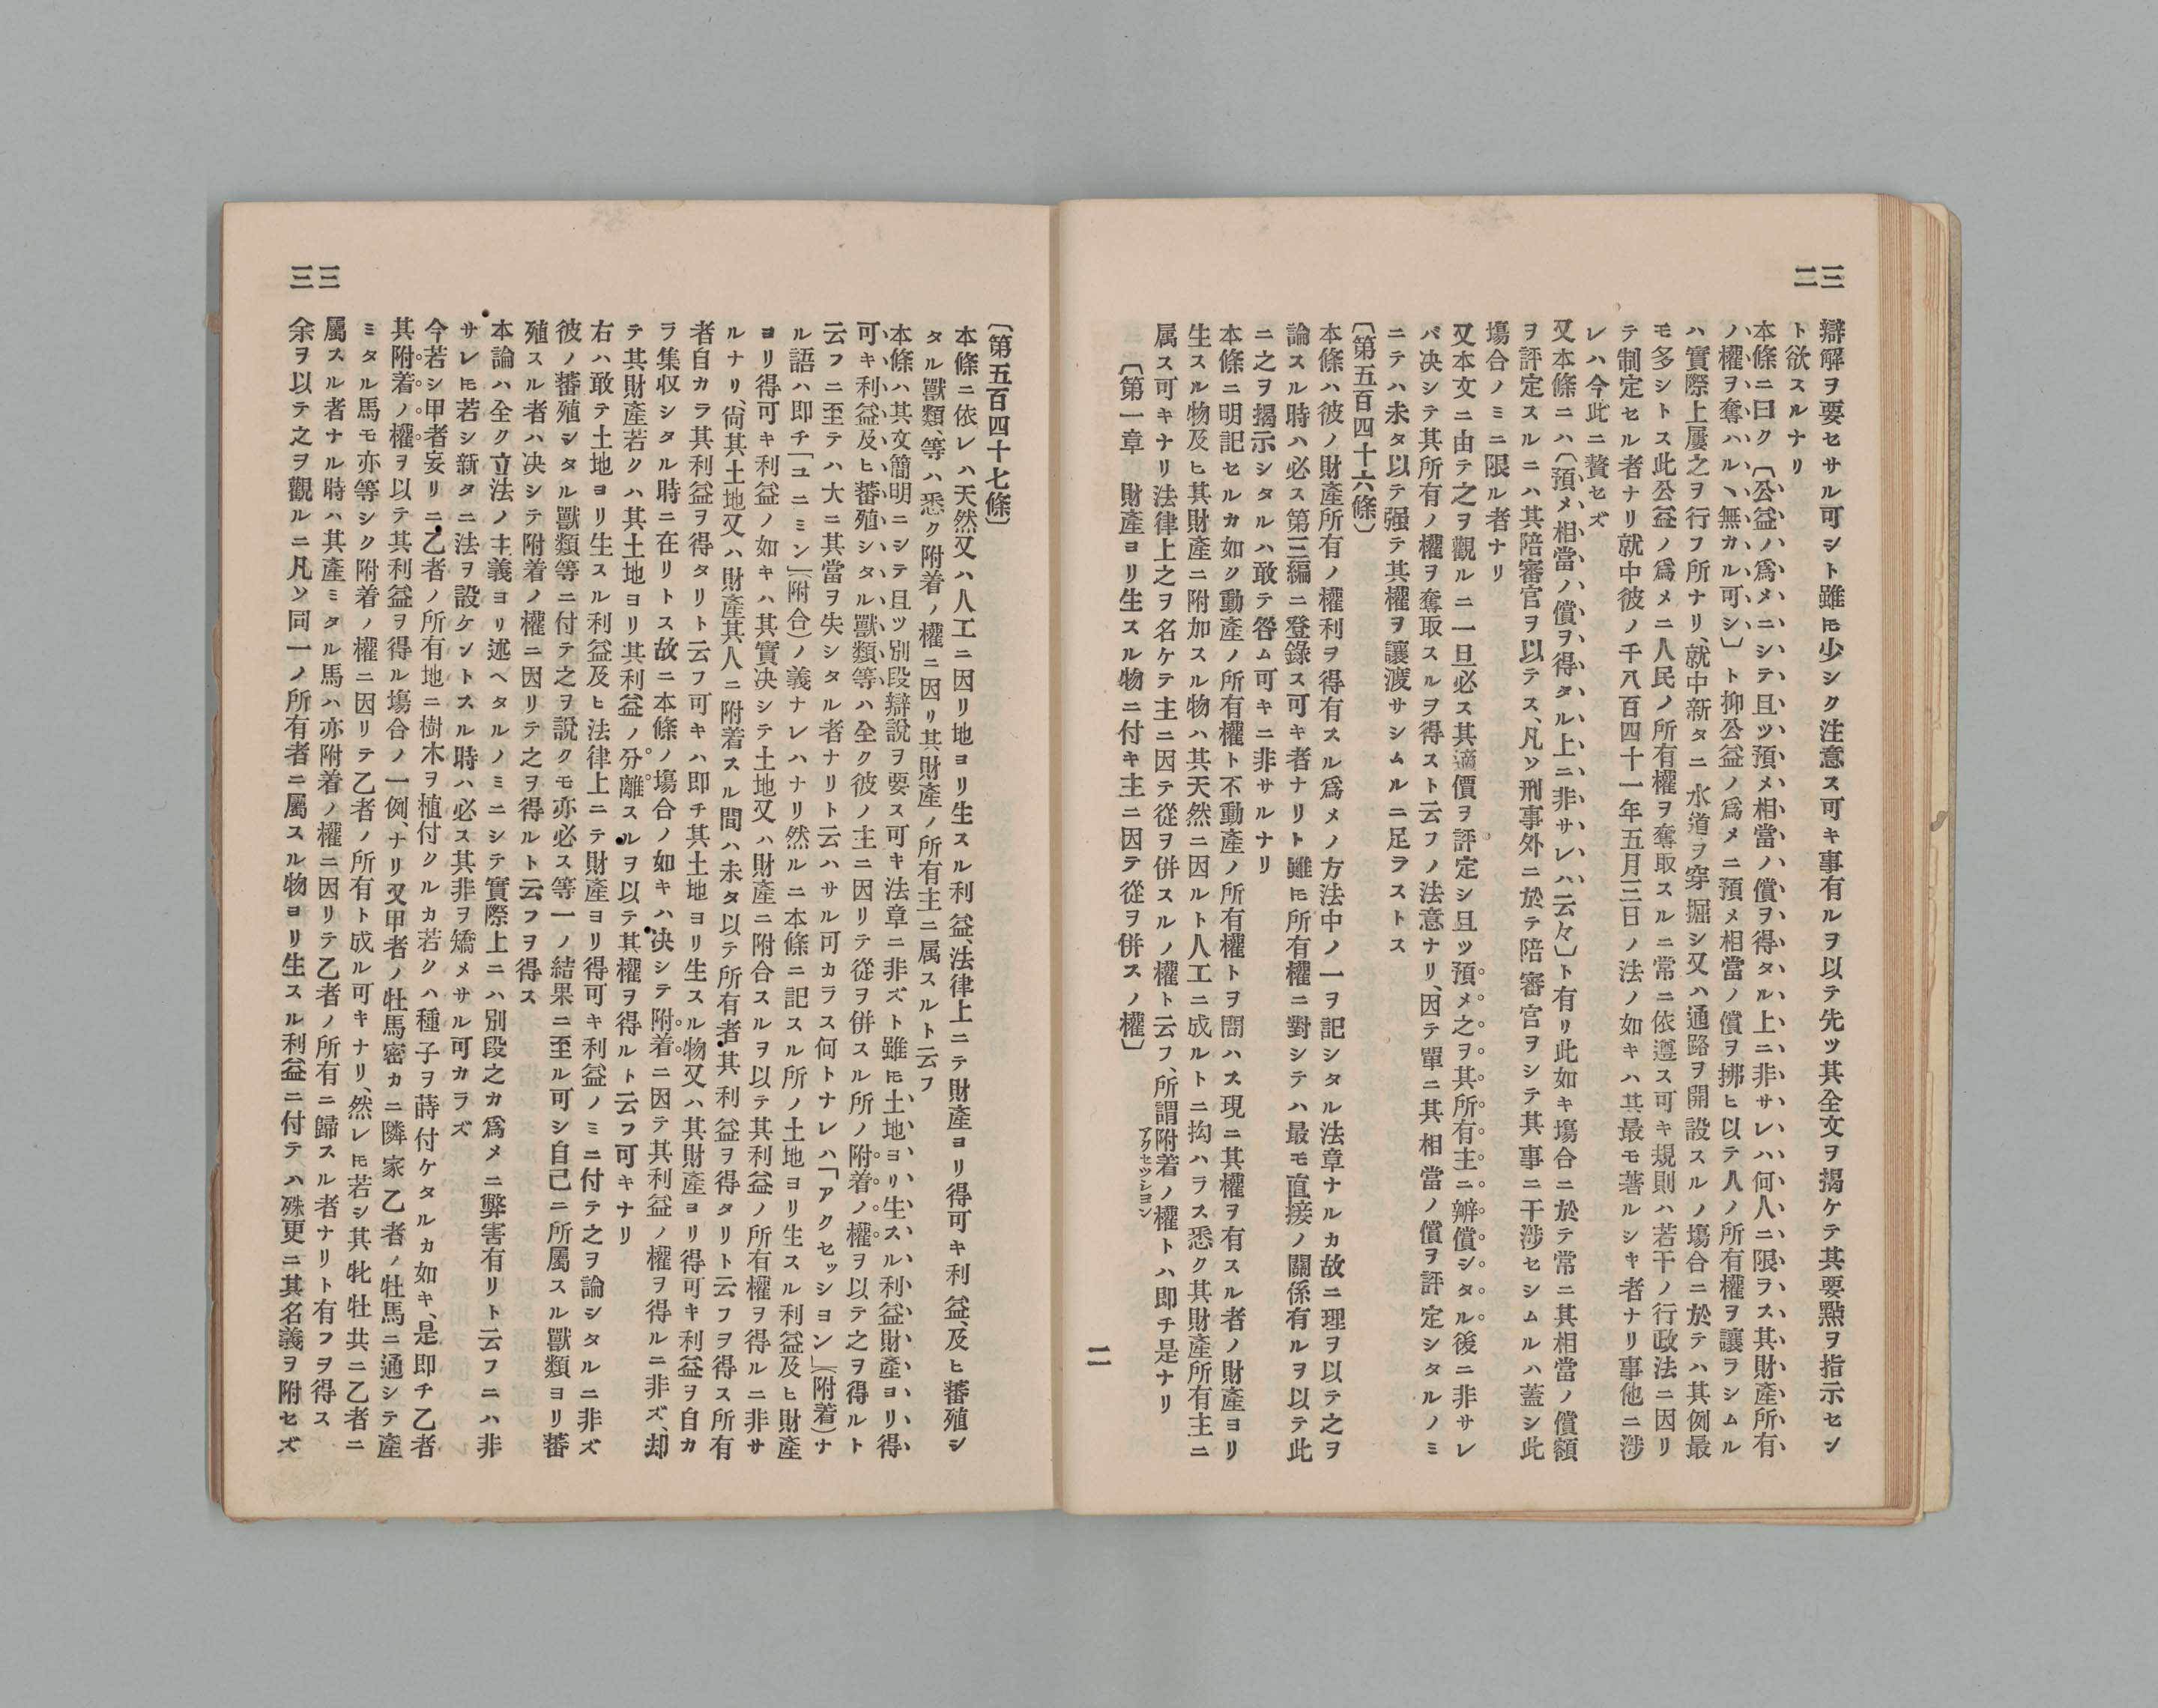 三二
辯解ヲ要セサル可シト雖𪜈少シク注意ス可キ事有ルヲ以テ先ツ其全文ヲ揭ケテ其要點ヲ指示セン
ト欲スルナリ
本條ニ曰ク〔公益ノ爲メニシテ且ツ預メ相當ノ償ヲ得タル上ニ非サレハ何人ニ限ヲス其財產所有
ノ權ヲ奪ハルヽ無カル可シ〕ト抑公益ノ爲メニ預メ相當ノ償ヲ拂ヒ以テ人ノ所有權ヲ讓ラシムル
ハ實際上屢之ヲ行フ所ナリ、就中新タニ水道ヲ穿掘シ又ハ通路ヲ開設スルノ塲合ニ於テハ其例最
モ多シトス此公益ノ爲メニ人民ノ所有權ヲ奪取スルニ常ニ依遵ス可キ規則ハ若干ノ行政法ニ因リ
テ制定セル者ナリ就中彼ノ千八百四十一年五月三日ノ法ノ如キハ其最モ著ルシキ者ナリ事他ニ涉
レハ今此ニ贅セズ
又本條ニハ〔預メ相當ノ償ヲ得タル上ニ非サレハ云々〕ト有リ此如キ塲合ニ於テ常ニ其相當ノ償額
ヲ評定スルニハ其陪審官ヲ以テス、凡ソ刑事外ニ於テ陪審官ヲシテ其事ニ干涉セシムルハ蓋シ此
塲合ノミニ限ル者ナリ
又本文ニ由テ之ヲ觀ルニ一旦必ス其適價ヲ評定シ且ツ預メ之ヲ其所有主ニ辨償シタル後ニ非サレ
バ决シテ其所有ノ權ヲ奪取スルヲ得スト云フノ法意ナリ、因テ單ニ其相當ノ償ヲ評定シタルノミ
ニテハ未タ以テ强テ其權ヲ讓渡サシムルニ足ヲストス
〔第五百四十六條〕
本條ハ彼ノ財產所有ノ權利ヲ得有スル爲メノ方法中ノ一ヲ記シタル法章ナルカ故ニ理ヲ以テ之ヲ
論スル時ハ必ス第三編ニ登錄ス可キ者ナリト雖𪜈所有權ニ對シテハ最モ直接ノ關係有ルヲ以テ此
ニ之ヲ揭示シタルハ敢テ咎ム可キニ非サルナリ
本條ニ明記セルカ如ク動產ノ所有權ト不動產ノ所有權トヲ問ハス現ニ其權ヲ有スル者ノ財產ヨリ
生スル物及ヒ其財產ニ附加スル物ハ其天然ニ因ルト人工ニ成ルトニ拘ハラス悉ク其財產所有主ニ
属ス可キナリ法律上之ヲ名ケテ主ニ因テ從ヲ併スルノ權ト云フ、所謂附着ノ權トハ即チ是ナリ
アクセッシヨン
〔第一章　財產ヨリ生スル物ニ付キ主ニ因テ從ヲ併スノ權〕
二
三三
〔第五百四十七條〕
本條ニ依レハ天然又ハ人工ニ因リ地ヨリ生スル利益、法律上ニテ財產ヨリ得可キ利益、及ヒ蕃殖シ
タル獸類、等ハ悉ク附着ノ權ニ因リ其財產ノ所有主ニ属スルト云フ
本條ハ其文簡明ニシテ且ツ別段辯說ヲ要ス可キ法章ニ非ズト雖𪜈土地ヨリ生スル利益財產ヨリ得
可キ利益及ヒ蕃殖シタル獸類等ハ全ク彼ノ主ニ因リテ從ヲ併スル所ノ附着ノ權ヲ以テ之ヲ得ルト
云フニ至テハ大ニ其當ヲ失シタル者ナリト云ハサル可カラス何トナレハ「アクセッシヨン」（附着）ナ
ル語ハ即チ「ユニミン」（附合）ノ義ナレハナリ然ルニ本條ニ記スル所ノ土地ヨリ生スル利益及ヒ財產
ヨリ得可キ利益ノ如キハ其實决シテ土地又ハ財產ニ附合スルヲ以テ其利益ノ所有權ヲ得ルニ非サ
ルナリ、尙其土地又ハ財產其人ニ附着スル間ハ未タ以テ所有者其利益ヲ得タリト云フヲ得ス所有
者自カラ其利益ヲ得タリト云フ可キハ即チ其土地ヨリ生スル物又ハ其財產ヨリ得可キ利益ヲ自カ
ラ集収シタル時ニ在リトス故ニ本條ノ塲合ノ如キハ决シテ附着ニ因テ其利益ノ權ヲ得ルニ非ズ、却
テ其財產若クハ其土地ヨリ其利益ノ分離スルヲ以テ其權ヲ得ルト云フ可キナリ
右ハ敢テ土地ヨリ生スル利益及ヒ法律上ニテ財產ヨリ得可キ利益ノミニ付テ之ヲ論シタルニ非ズ
彼ノ蕃殖シタル獸類等ニ付テ之ヲ說クモ亦必ス等一ノ結果ニ至ル可シ自己ニ所屬スル獸類ヨリ蕃
殖スル者ハ决シテ附着ノ權ニ因リテ之ヲ得ルト云フヲ得ス
本論ハ全ク立法ノ主義ヨリ述ヘタルノミニシテ實際上ニハ別段之カ爲メニ弊害有リト云フニハ非
サレ𪜈若シ新タニ法ヲ設ケントスル時ハ必ス其非ヲ矯メサル可カラズ
今若シ甲者妄リニ乙者ノ所有地ニ樹木ヲ植付クルカ若クハ種子ヲ蒔付ケタルカ如キ、是即チ乙者
其附着ノ權ヲ以テ其利益ヲ得ル塲合ノ一例、ナリ又甲者ノ牡馬密カニ隣家乙者ノ牡馬ニ通シテ產
ミタル馬モ亦等シク附着ノ權ニ因リテ乙者ノ所有ト成ル可キナリ、然レ𪜈若シ其牝牡共ニ乙者ニ
屬スル者ナル時ハ其產ミタル馬ハ亦附着ノ權ニ因リテ乙者ノ所有ニ歸スル者ナリト有フヲ得ス
余ヲ以テ之ヲ觀ルニ凡ソ同一ノ所有者ニ屬スル物ヨリ生スル利益ニ付テハ殊更ニ其名義ヲ附セズ